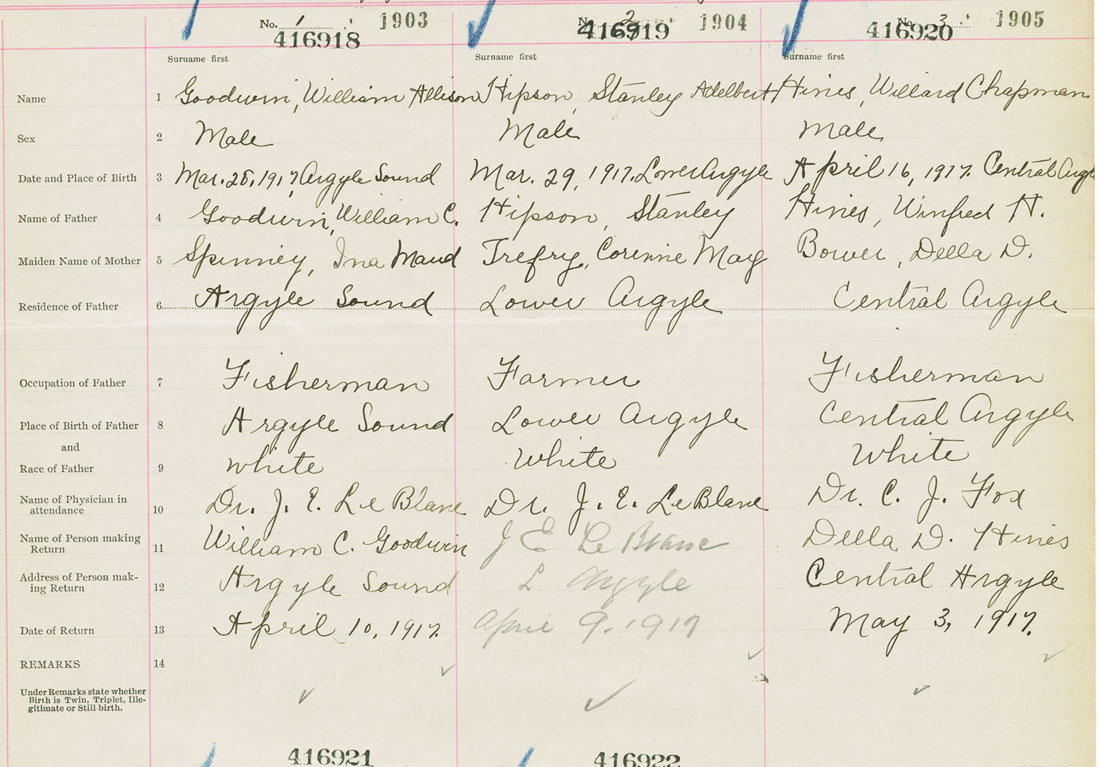 No. 1 1903 No. 2 1904 No. 3 1905
416918 416919 416920
Surname first Surname first Surname first
Name 1 Goodwin, William Allison Hipson, Stanley Adelbert Hines, Willard Chapman
Sex 2 Male Male Male
Date and Place of Birth 3 Mar. 28, 1917 Argyle Sound Mar. 29, 1917. Lower Argyle April 16, 1917. Central Argyle
Name of Father 4 Goodwin, William C. Hipson, Stanley Hines, Winfred H.
Maiden Name of Mother 5 Spinney, Ina Maud Trefry, Corinne May Bower, Della D.
Residence of Father 6 Argyle Sound Lower Argyle Central Argyle
Occupation of Father 7 Fisherman Farmer Fisherman
Place of Birth of Father 8 Argyle Sound Lower Argyle Central Argyle
and
Race of Father 9 White White White
Name of Physician in
attendance 10 Dr. J. E. LeBlanc Dr. J. E. LeBlanc Dr. C. J. Fox
Name of Person making
Return 11 William C. Goodwin J E LeBlanc Della D. Hines
Address of Person mak-
ing Return 12 Argyle Sound L. Argyle Central Argyle
Date of Return 13 April 10, 1917. April 9. 1917 May 3, 1917.
REMARKS 14
Under Remarks state whether
Birth is Twin, Triplet, Ille-
gitimate or Still birth.
416921 416922